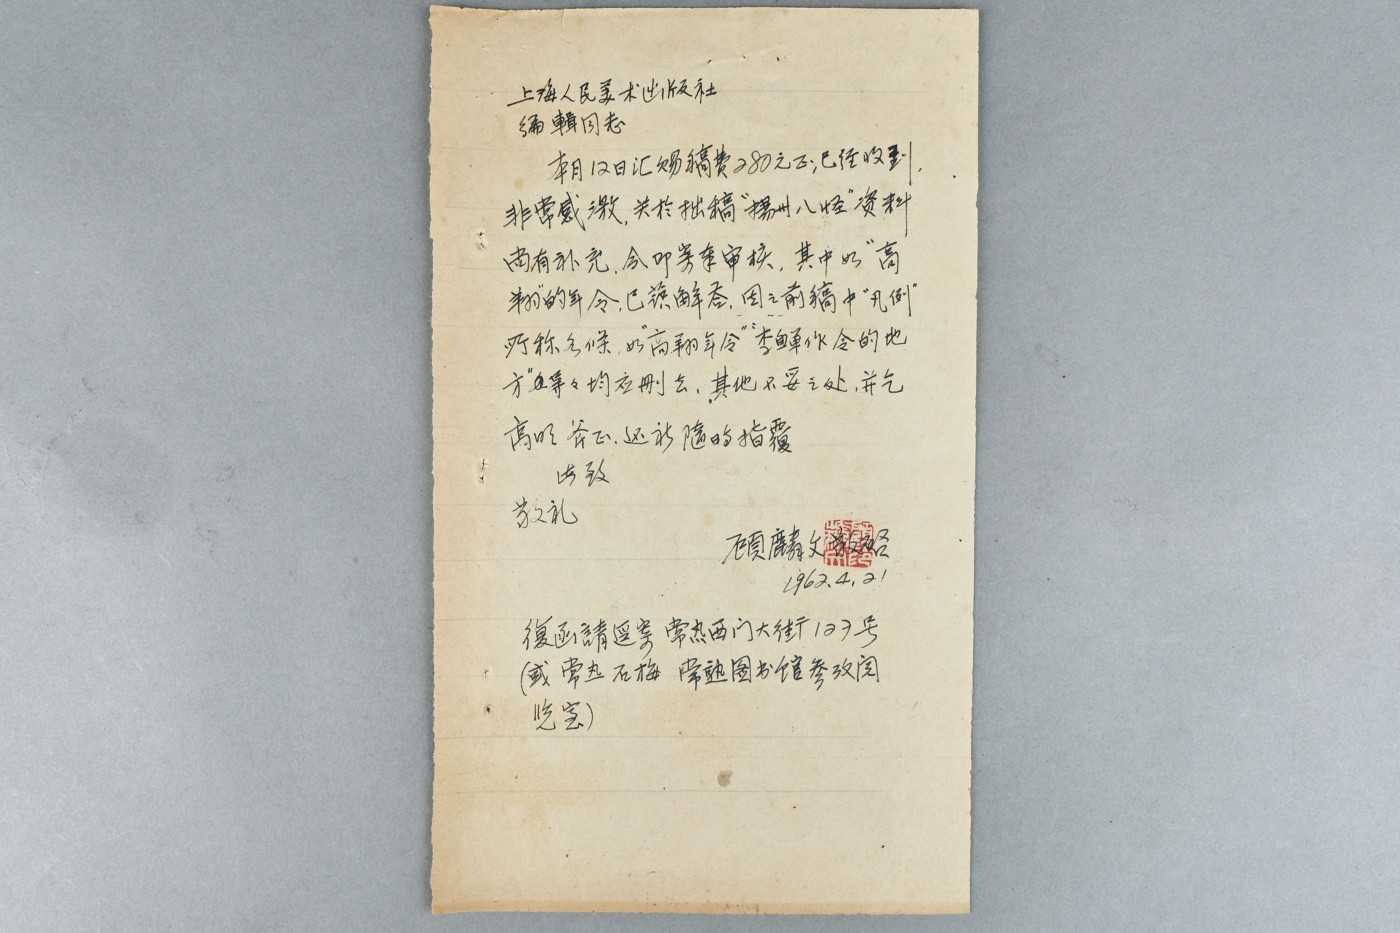 上海人民美术出版社
编輯同志
本月12日汇赐稿费280元正,已经收到,
非常感激,关於拙稿"揚州八怪"资料
尚有补充,今即寄奉审核,其中如"高
翔"的年令,已获解答,因之前稿中"凡例"
所称各条,如"高翔年令""李鱓作令的地
方"等々均应删去,其他不妥之处,并乞
高明斧正,还祈隨时指覆
此致
敬礼
顧麟文敬启
1962.4.21
復函請逕寄常热西门大街127号
(或常热石梅 常熟图书馆参攷阅
览室)